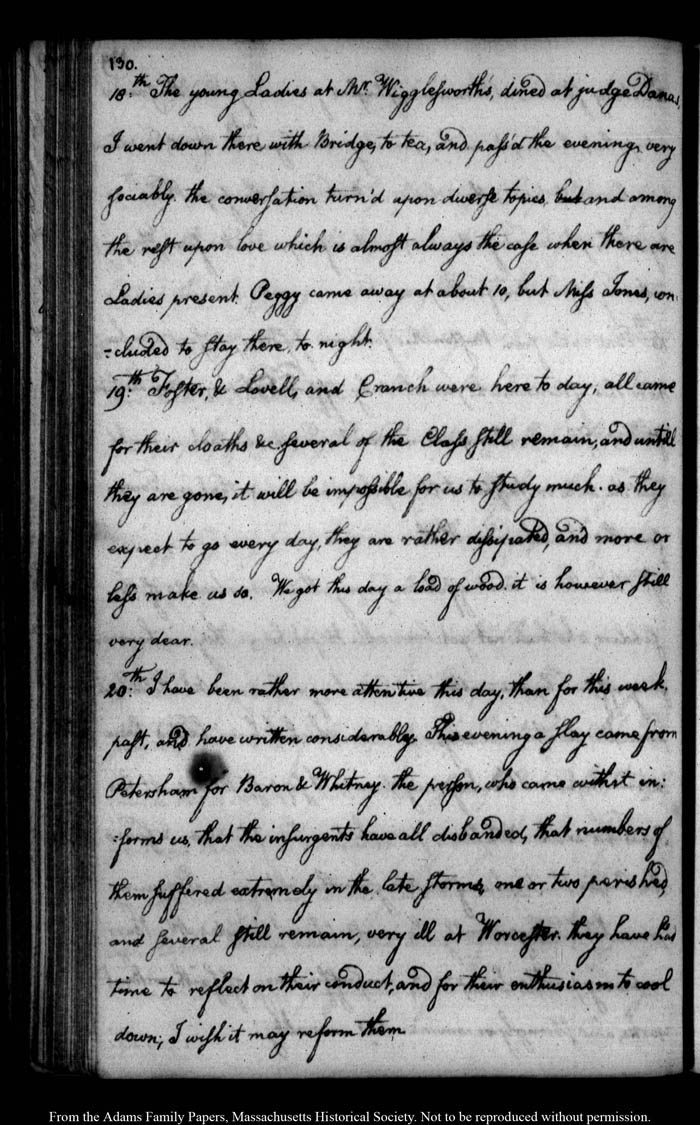 130.
18.th The young Ladies at Mr. Wigglesworth's, dined at judge Dana's,
I went down there with Bridge, to tea, and pass'd the evening, very
sociably. the conversation turn'd upon diverse topics, but and among
the rest upon love which is almost always the case when there are
Ladies present. Peggy came away at about 10, but Miss Jones, con-
-cluded to stay there, to. night.
19.th Foster, & Lovell, and Cranch were here to day, all came
for their cloaths &c. several of the Class still remain, and untill
they are gone, it will be impossible for us to study much. as they
expect to go every day, they are rather dissipated, and more or
less make us so. We got this day a load of wood. it is however still
very dear.
20.th I have been rather more attentive this day, than for this week,
past, and have written considerably. This evening a slay came from
Petersham for Baron & Whitney. the person, who came with it in:
:forms us, that the insurgents have all disbanded, that numbers of
them suffered extremely in the late storms, one or two perished,
and several still remain, very ill at Worcester. they have had
time to reflect on their conduct, and for their enthusiasm to cool
down; I wish it may reform them
From the Adams Family Papers, Massachusetts Historical Society. Not to be reproduced without permission.